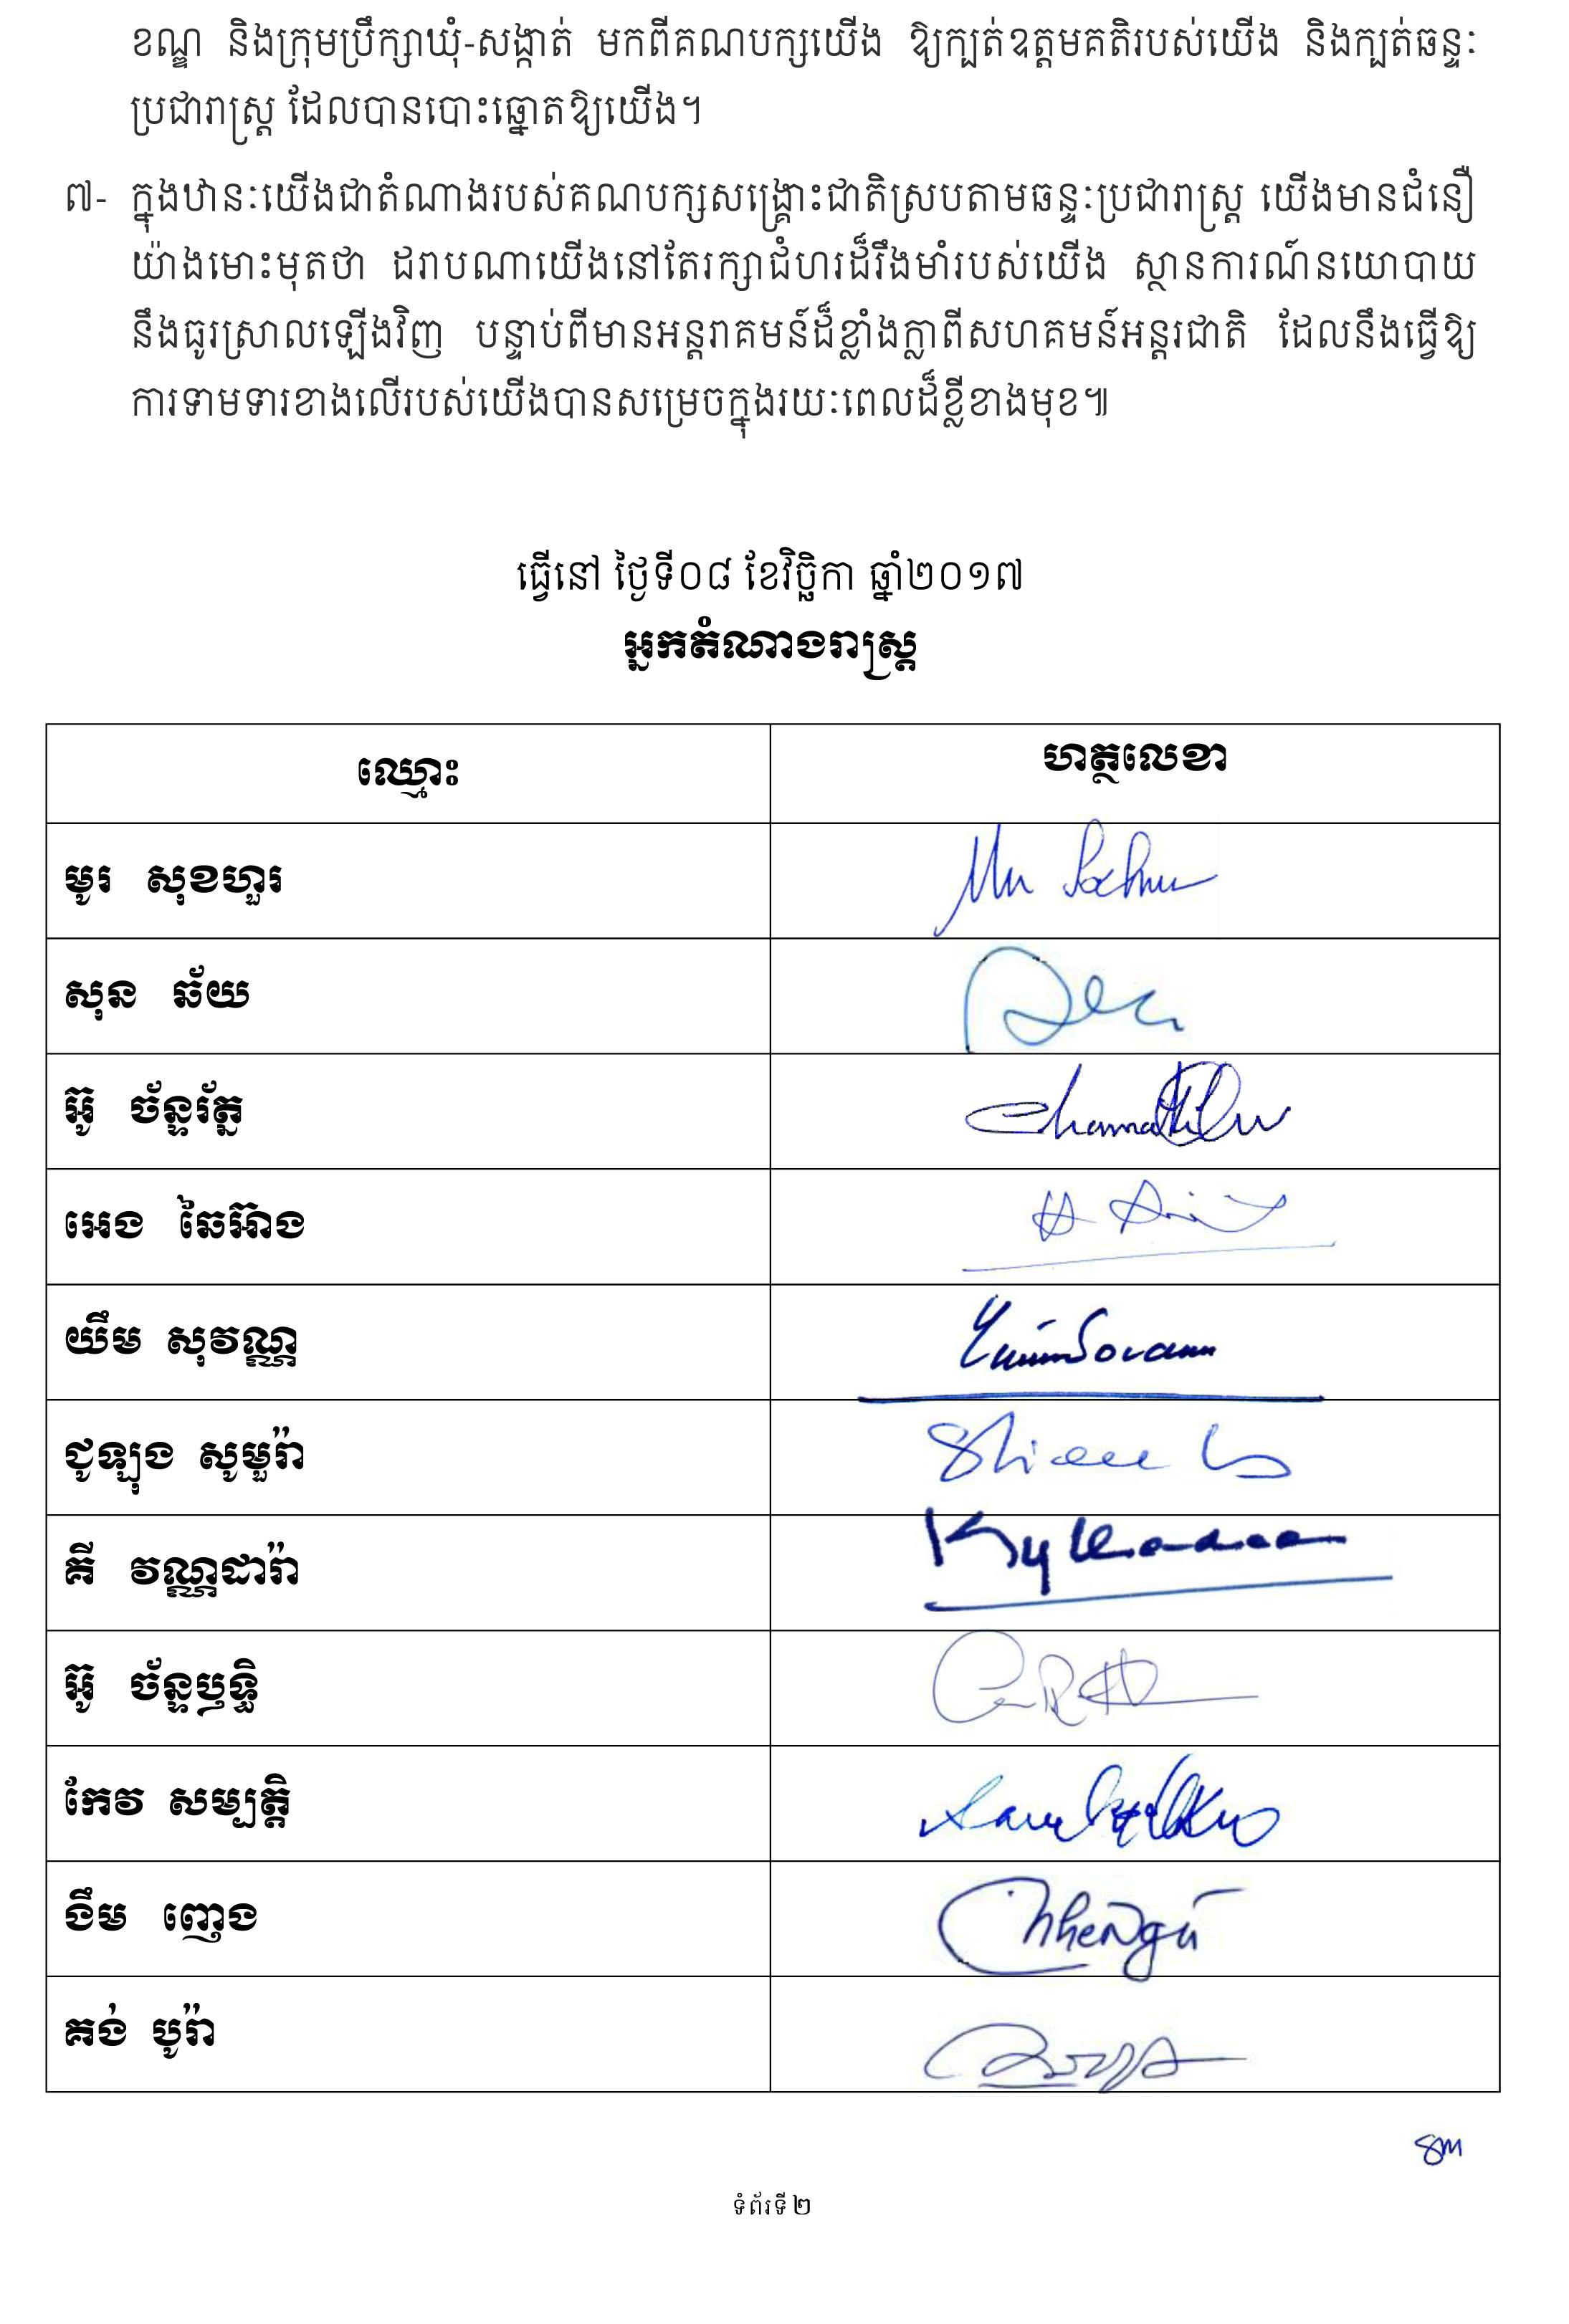 ខណ្ឌ និងក្រុមប្រឹក្សាឃុំ-សង្កាត់ មកពីគណបក្សយើង ឱ្យក្បត់ឧត្តមគតិរបស់យើង និងក្បត់ឆន្ទៈ
ប្រជារាស្ត្រ ដែលបានបោះឆ្នោតឱ្យយើង។
៧- ក្នុងឋានៈយើងជាតំណាងរបស់គណបក្សសង្គ្រោះជាតិស្របតាមឆន្ទៈប្រជារាស្ត្រ យើងមានជំនឿ
យ៉ាងមោះមុតថា ដរាបណាយើងនៅតែរក្សាជំហរដ៏រឹងមាំរបស់យើង ស្ថានការណ៍នយោបាយ
នឹងធូរស្រាលឡើងវិញ បន្ទាប់ពីមានអន្តរាគមន៍ដ៏ខ្លាំងក្លាពីសហគមន៍អន្តរជាតិ ដែលនឹងធ្វើឱ្យ
ការទាមទារខាងលើរបស់យើងបានសម្រេចក្នុងរយៈពេលដ៏ខ្លីខាងមុខ៕
ធ្វើនៅ ថ្ងៃទី០៨ ខែវិច្ឆិកា ឆ្នាំ២០១៧
អ្នកតំណាងរាស្ត្រ
ឈ្មោះ ហត្ថលេខា
មូរ សុខហួរ
សុន ឆ័យ
អ៊ូ ច័ន្ទរ័ត្ន
អេង ឆៃអ៊ាង
យឹម សុវណ្ណ Yim Sovann
ជូឡុង សូមួរ៉ា
គី វណ្ណដារ៉ា
អ៊ូ ច័ន្ទឫទ្ធិ
កែវ សម្បត្តិ
ងឹម ញ៉េង
គង់ បូរ៉ា
SM
ទំព័រទី ២